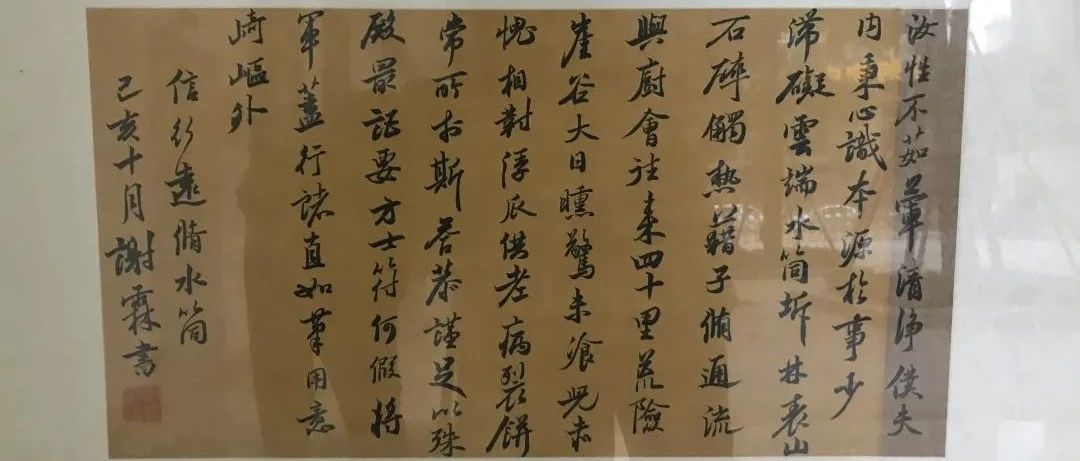 汝性不茹葷清淨僕夫
内秉心識本源於事少
滯礙雲端水筒坼林表山
石碎觸熱藉子脩通流
與廚會往來四十里荒險
崖谷大日曛驚未飡皃赤
愧相對浮瓜供老病裂餅
常所於斯荅恭謹足以殊
殿最詎要方士符何假將
軍蓋行諸直如筆用意
崎嶇外
信行遠脩水筒
己亥十月謝霖書